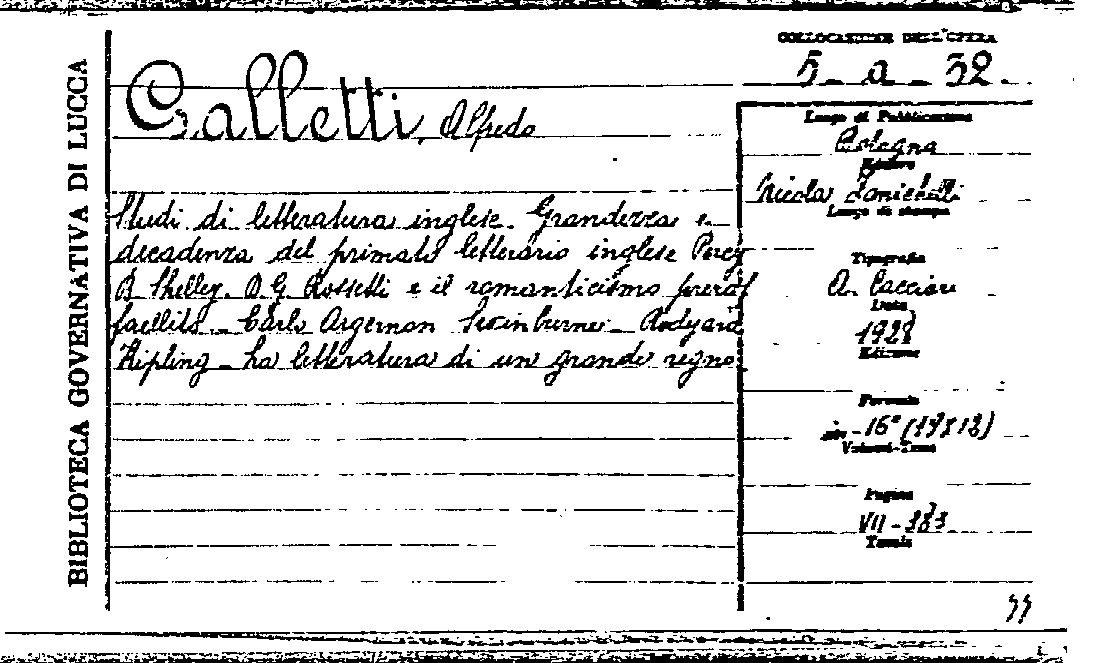 BIBLIOTECA GOVERNATIVA DI LUCCA
COLLOCAZIONE DELL'OPERA
5 - a - 32.
Galletti, Alfredo
Studi di letteratura inglese. Grandezza e
decadenza del primato letterario inglese Percy
B. Shelley. D. G. Rossetti e il romanticismo preraf
faellita - Carlo Argernon Swinburne - Rodyard
Kipling - La letteratura di un grande regno.
Luogo di Pubblicazione
Bologna
Editore
Nicola Zanichelli
Luogo di stampa
Tipografia
A. Cacciari
Data
1928
Edizione
Formato
in-16° (19x12)
Volumi-Tomi
Pagine
VII - 383
Tavole